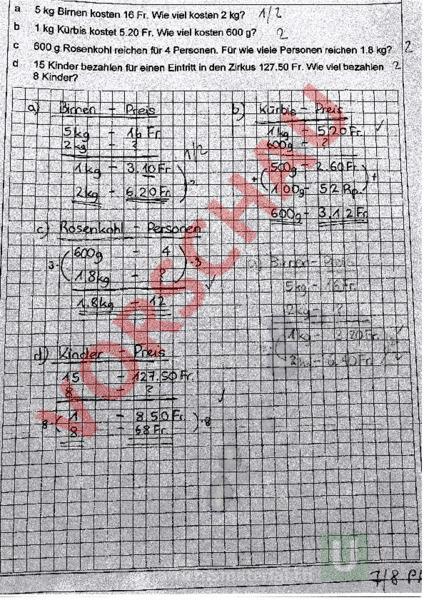 a 5 kg Birnen kosten 16 Fr. Wie viel kosten 2 kg? 1/2
b 1 kg Kürbis kostet 5.20 Fr. Wie viel kosten 600 g? 2
c 600 g Rosenkohl reichen für 4 Personen. Für wie viele Personen reichen 1.8 kg? 2
d 15 Kinder bezahlen für einen Eintritt in den Zirkus 127.50 Fr. Wie viel bezahlen 2
8 Kinder?
a) Birnen - Preis
5kg - 16 Fr
2kg - ?
1/2
1kg - 3.10 Fr.
2kg - 6.20 Fr.
b) Kürbis - Preis
1kg - 5.20 Fr.
600g - ?
500g - 2.60 Fr.
100g - 52 Rp.
600g - 3.12 Fr.
c) Rosenkohl - Personen
600g - 4
3· ·3
1,8kg - ?
1.8kg - 12
a) Birnen - Preis
5kg - 16 Fr.
2kg - ?
1kg - 3.20 Fr.
2kg - 6.40 Fr.
d) Kinder - Preis
15 - 127.50 Fr.
8 - ?
1 - 8.50 Fr.
8· ·8
8 - 68 Fr.
VORSCHAU
U